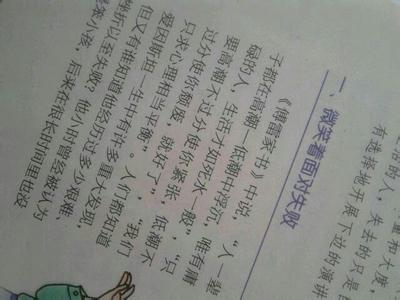 量和大度，
的人，失去的只是
有选择地开展下边的演讲
一、微笑着面对失败
《傅雷家书》中说，“人一辈
子都在高潮—低潮中浮沉，唯有庸
碌的人，生活才如死水一般”，“只
要高潮不过分使你紧张，低潮不
过分使你颓废，就好了”，“我们
只求心理相当平衡”。人们都知道
爱因斯坦一生中有许多重大发现，
但又有谁知道他经历过多少艰难、
挫折以至失败？他小时曾经被认为
是笨小孩，后来在很长时间里也没